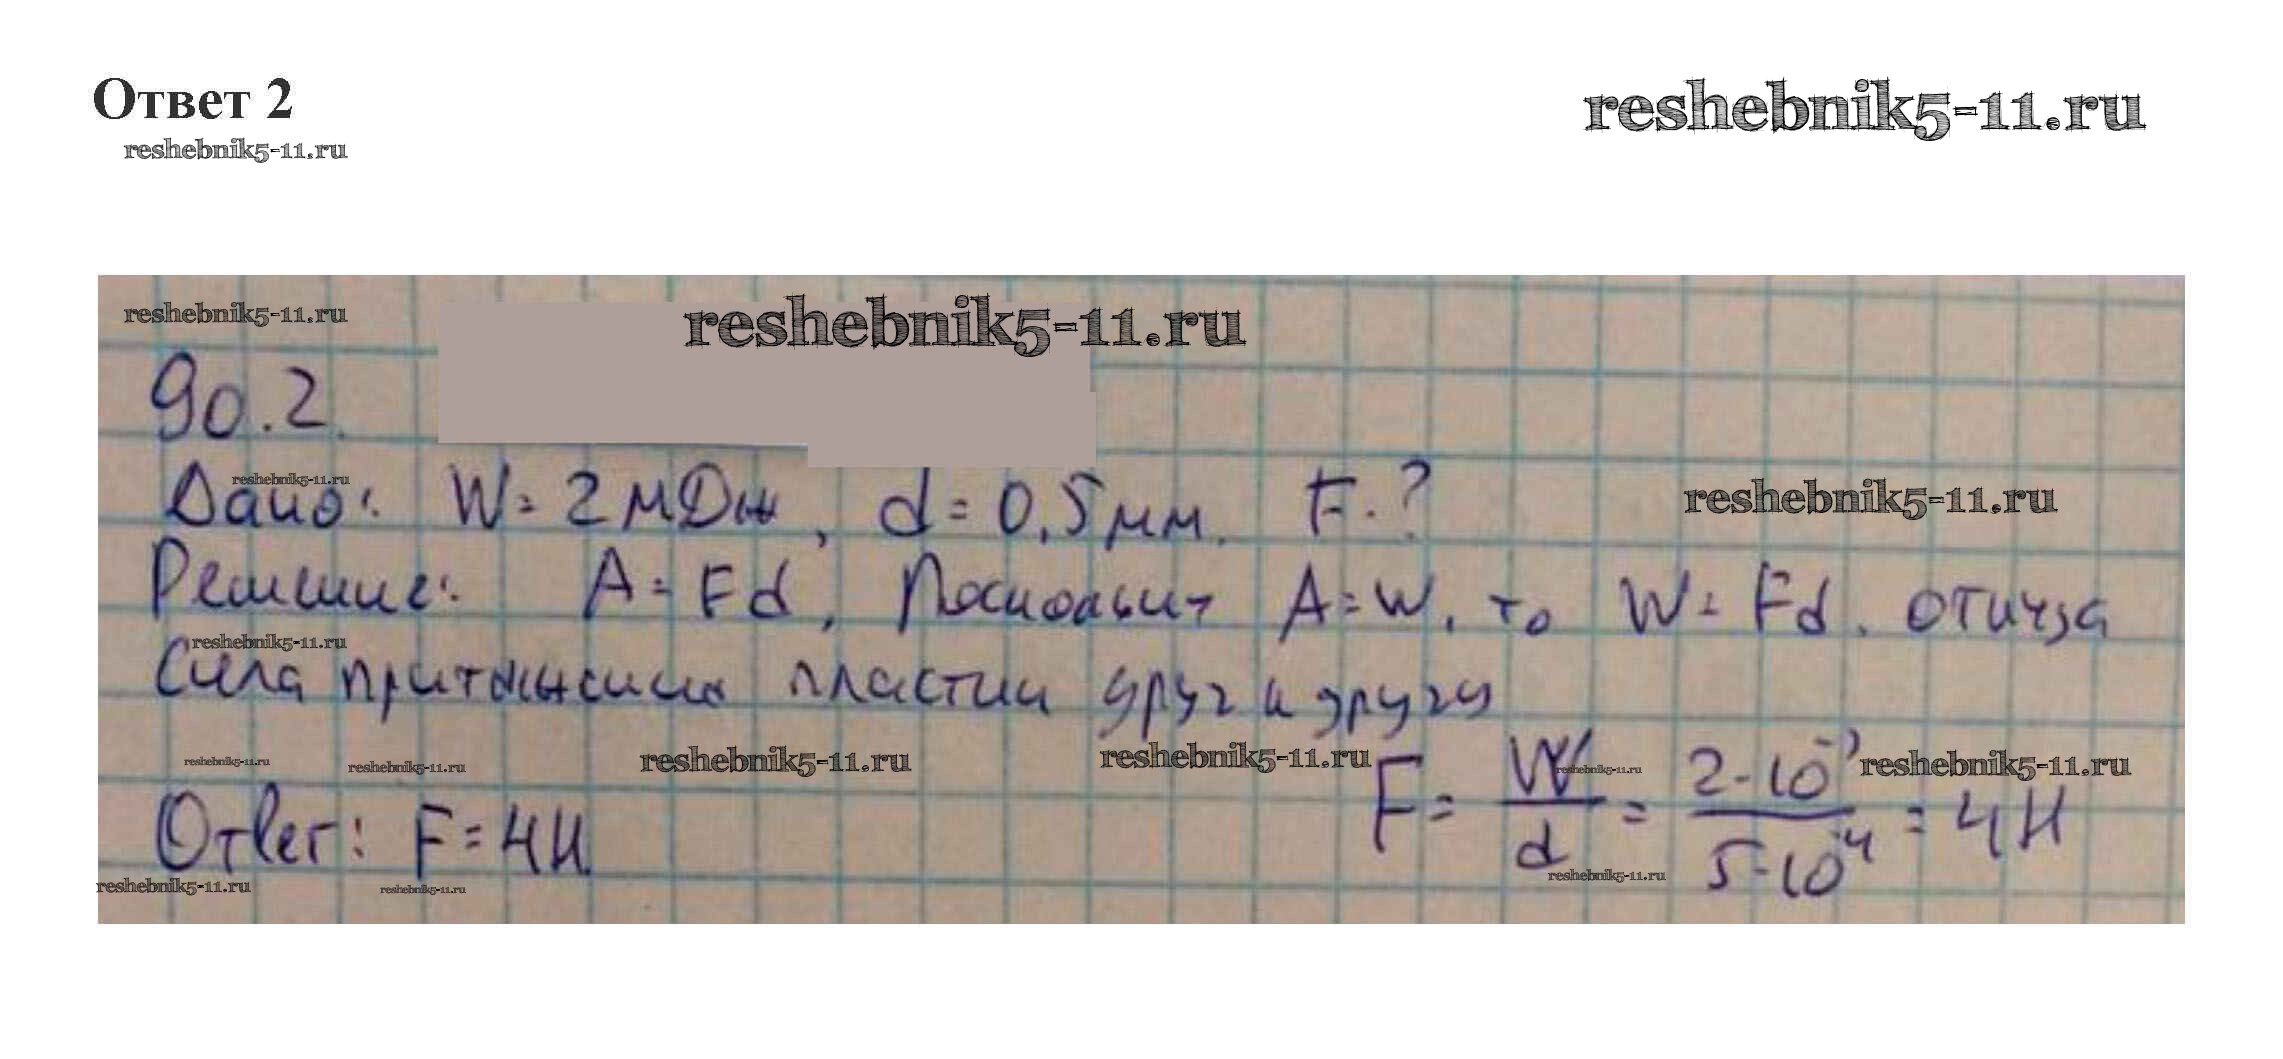 Ответ 2
reshebnik5-11.ru
reshebnik5-11.ru
reshebnik5-11.ru
reshebnik5-11.ru
90.2.
Дано: W = 2 мДж, d = 0,5 мм. F - ?
reshebnik5-11.ru
reshebnik5-11.ru
Решение: A = Fd, Поскольку A = W, то W = Fd. отсюда
reshebnik5-11.ru
Сила притяжения пластин друг к другу
reshebnik5-11.ru reshebnik5-11.ru reshebnik5-11.ru reshebnik5-11.ru reshebnik5-11.ru reshebnik5-11.ru
F = W/d = 2·10⁻³/5·10⁻⁴ = 4 Н
Ответ: F = 4 Н.
reshebnik5-11.ru reshebnik5-11.ru reshebnik5-11.ru